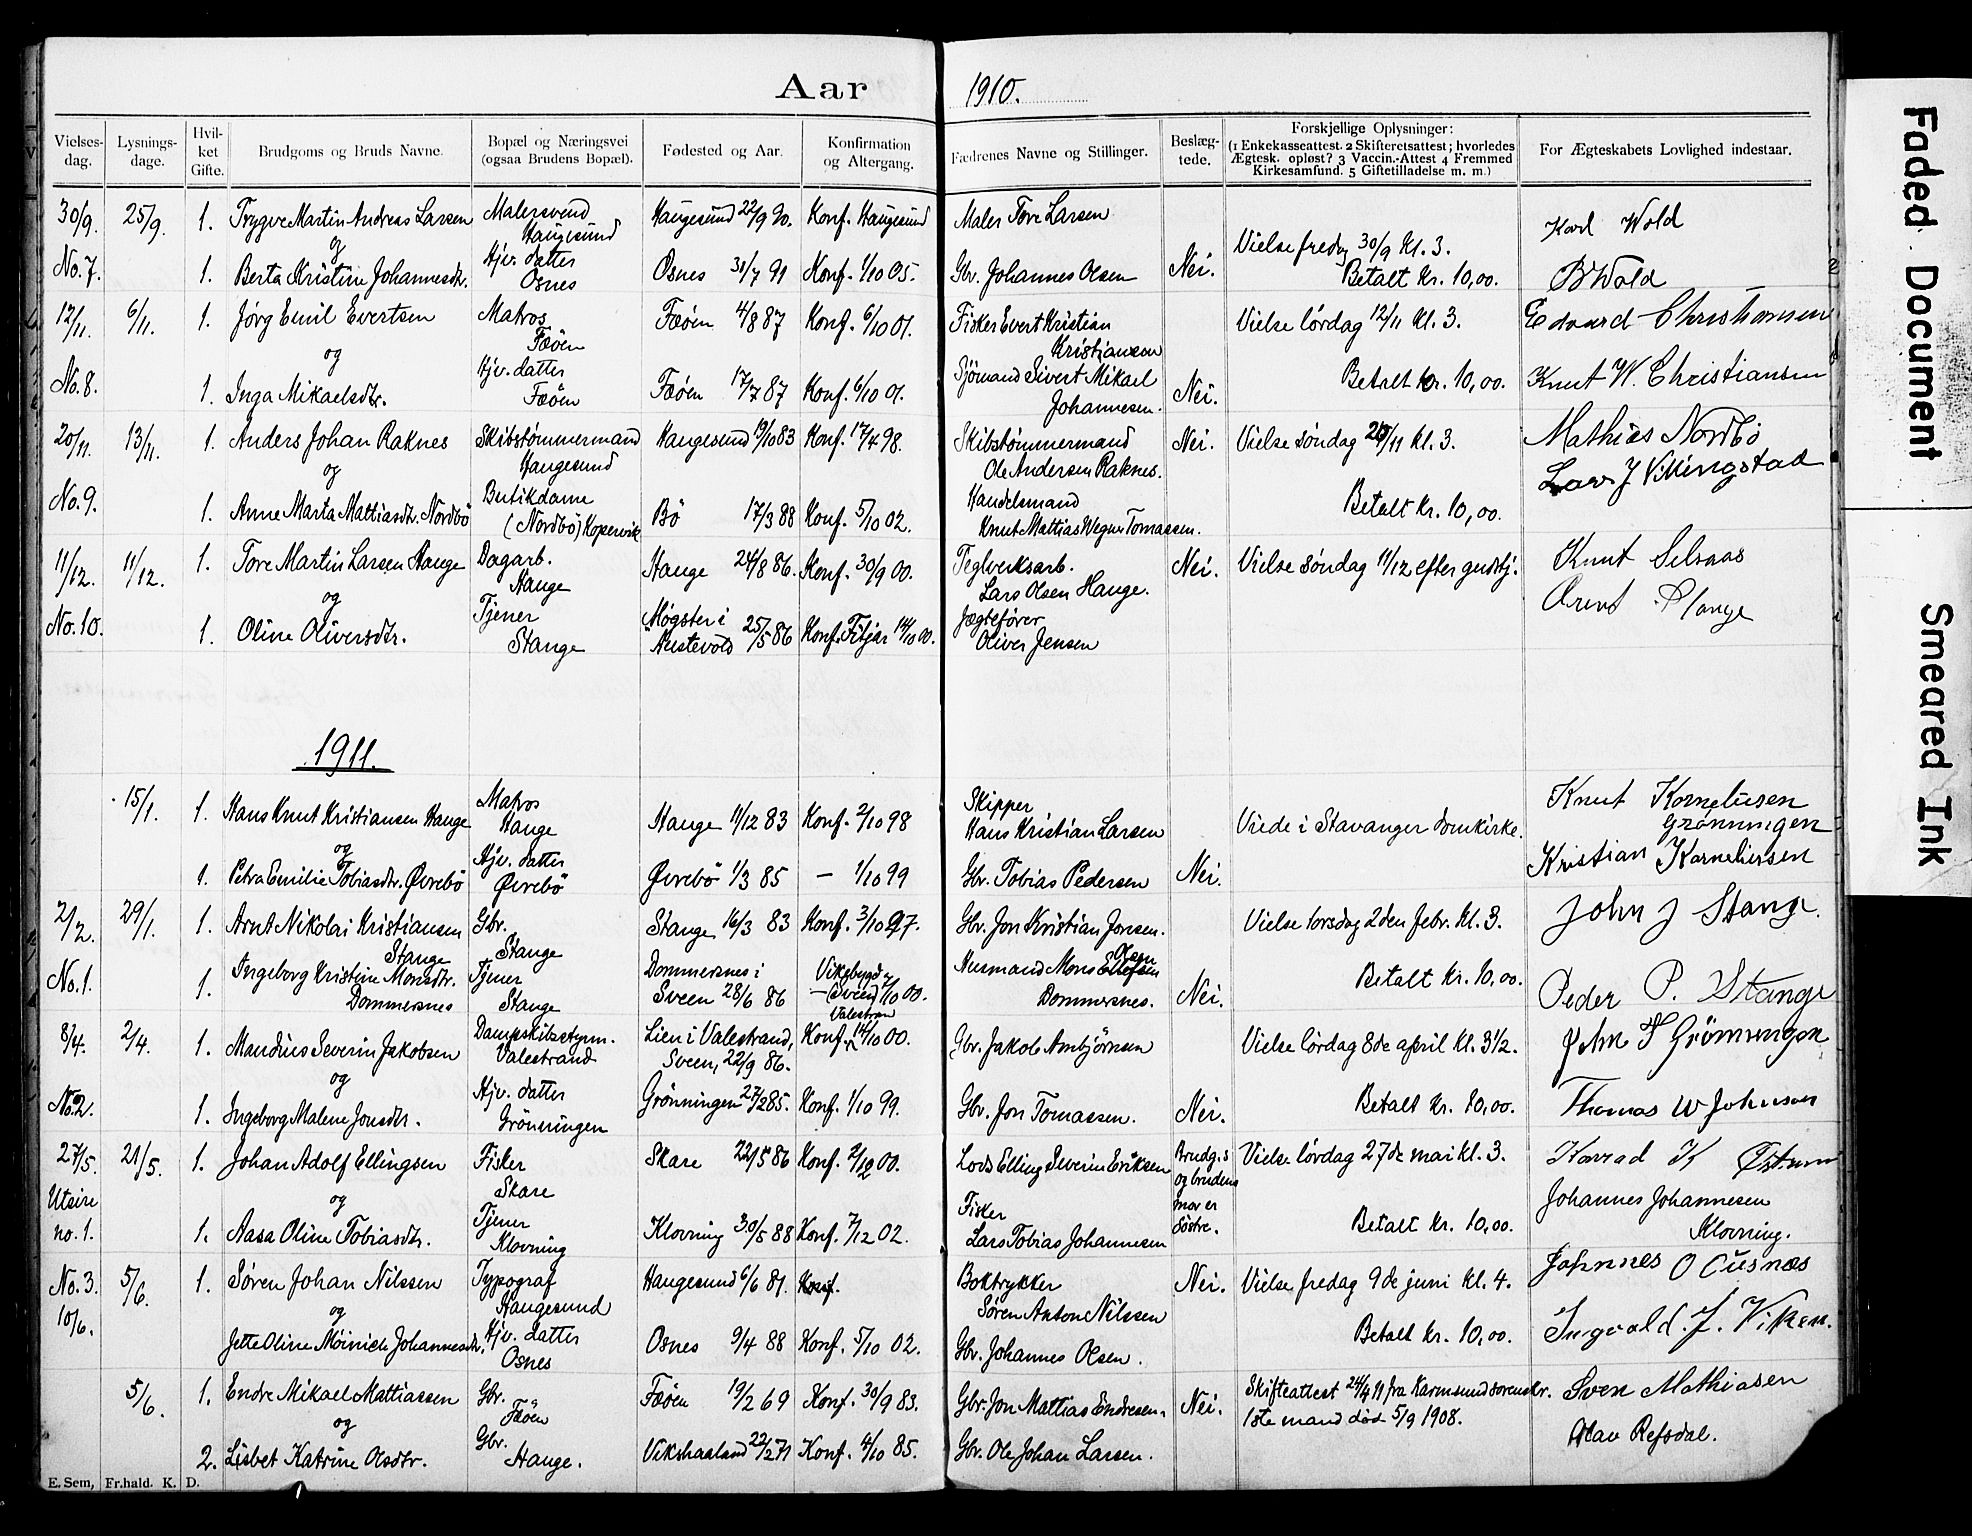 Aar 1910.
Vielses-dag. Lysnings-dage. Hvil-ket Gifte. Brudgoms og Bruds Navne. Bopæl og Næringsvei (ogsaa Brudens Bopæl). Fødested og Aar. Konfirmation og Altergang. Fædrenes Navne og Stillinger. Beslæg-tede. Forskjellige Oplysninger: (1 Enkekasseattest. 2 Skifteretsattest; hvorledes Ægtesk. opløst? 3 Vaccin.-Attest 4 Fremmed Kirkesamfund. 5 Giftetilladelse m. m.) For Ægteskabets Lovlighed indestaar.
30/9. 25/9. 1. Trygve Martin Andreas Larsen Malersvend Haugesund Haugesund 22/9 90. Konf. Haugesund Maler Tore Larsen Vielse fredag 30/9 kl. 3. Karl Wold
og
No. 7. 1. Berta Kristine Johannesdtr. Hjv. datter Osnes Osnes 31/7 91 Konf. 1/10 05. Gbr. Johannes Olsen Nei. Betalt kr. 10,00. B Wold
12/11. 6/11. 1. Jørg Emil Evertsen Matros Føøen Føøen 4/8 87 Konf. 6/10 01. Fisker Evert Kristian Kristiansen Vielse lördag 12/11 kl. 3. Edvard Christiansen
og
No. 8. 1. Inga Mikaelsdtr. Hjv. datter Føøen Føøen 17/7 87 Konf. 6/10 01. Sjömand Sivert Mikael Johannesen. Nei. Betalt kr. 10,00. Knut W. Christiansen
20/11. 13/11. 1. Anders Johan Raknes Skibstømmermand Haugesund Haugesund 19/10 83 Konf. 17/4 98. Skibstømmermand Ole Andersen Raknes. Nei. Vielse søndag 20/11 kl. 3. Mathias Nordbö
og
No. 9. 1. Anne Marta Mattiasdtr. Nordbö Butikdame (Nordbö) Kopervik Bö 17/3 88 Konf. 5/10 02. Handelsmand Knut Mattias Wegner Tomassen. Betalt kr. 10,00. Lars J Vikingstad
11/12. 11/12. 1. Tore Martin Larsen Hauge Dagarb. Hauge Hauge 24/8 86. Konf. 30/9 00. Teglverksarb. Lars Olsen Hauge. Nei. Vielse søndag 11/12 efter gudstj. Knut Selsaas
og
No. 10. 1. Oline Oliversdtr. Tjener Stange Møgster i Austevold 25/5 86 Konf. Fitjar 14/10 00. Jægtefører Oliver Jensen Arent Stange
1911.
15/1. 1. Hans Knut Kristiansen Hauge Matros Hauge Hauge 11/12 83 Konf. 2/10 98 Skipper Hans Kristian Larsen Viede i Stavanger domkirke. Knut Korneliusen Grönningen
og
1. Petra Emilie Tobiasdtr. Øvrebö Hjv. datter Øvrebö Øvrebö 1/3 85 — 1/10 99 Gbr. Tobias Pedersen Nei. Kristian Korneliusen
2/2. 29/1. 1. Arnt Nikolai Kristiansen Stange Gbr. Stange Stange 16/3 83 Konf. 3/10 97. Gbr. Jon Kristian Jonsen. Vielse torsdag 2den febr. kl. 3. John J Stange.
No. 1. 1. Ingeborg Kristine Monsdtr. Dommersnes Tjener Stange Dommersnes i Sveen 28/6 86 Vikebygd — (Sveen) 7/10 00. Husmand Mons Ellefsen Olsen Dommersnes. Nei. Betalt kr. 10,00. Peder P. Stange
8/4. 2/4. 1. Mandius Severin Jakobsen Dampskibsstyrm. Valestrand Lien i Valestrand, Sveen, 22/9 86. Valestran Konf. 14/10 00. Gbr. Jakob Ambjörnsen Vielse lördag 8de april kl. 3 1/2. John T Grönningen
og
No. 2. 1. Ingeborg Malene Jonsdtr. Hjv. datter Grönningen Grönningen 27/2 85. Konf. 1/10 99. Gbr. Jon Tomassen. Nei. Betalt kr. 10,00. Thomas W Johnsen
27/5. 21/5. 1. Johan Adolf Ellingsen Fisker Skare Skare 22/5 86 Konf. 2/12 00. Lods Elling Severin Eriksen Brudg.s og brudens mor er söstre. Vielse lördag 27de mai kl. 3. Konrad K Østrem
og
Utsire no. 1. 1. Aasa Oline Tobiasdtr. Tjener Klovning Klovning 30/5 88 Konf. 7/12 02. Fisker Lars Tobias Johannesen Betalt kr. 10,00. Johannes Johannesen Klovning.
No. 3. 5/6. 1. Søren Johan Nilssen Typograf Haugesund Haugesund 6/6 87. Konf. Boktrykker Søren Anton Nilssen Nei. Vielse fredag 9de juni kl. 4. Johannes O Ousnæs
og
10/6. Jette Oline Møinich Johannesdtr. Hjv. datter Osnes Osnes 9/4 88 Konf. 5/10 02. Gbr. Johannes Olsen. Betalt kr. 10,00. Ingvald. J. Viken.
5/6. 1. Endre Mikael Mattiassen Gbr. Føøen Føøen 19/2 69 Konf. 30/9 83. Gbr. Jon Mattias Endresen. Nei. Skifteattest 24/4 11 fra Karmsund sorenskr. 1ste mand död 5/9 1908. Sven Mathiasen
og
2. Lisbet Katrine Olsdtr. Gbr. Hauge. Vikshaaland 22/2 71 Konf. 4/10 85. Gbr. Ole Johan Larsen. Olav Refsdal.
E. Sem, Fr.hald. K. D.
Faded Document
Smeared Ink